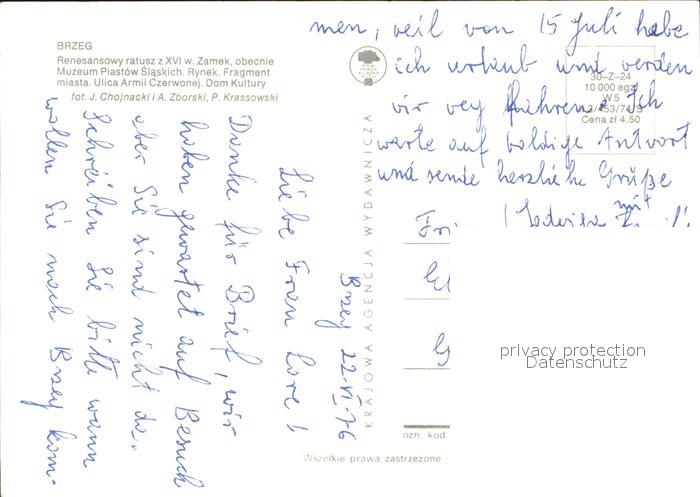 BRZEG
Renesansowy ratusz z XVI w. Zamek, obecnie
Muzeum Piastów Śląskich. Rynek. Fragment
miasta. Ulica Armii Czerwonej. Dom Kultury
fot. J. Chojnacki i A. Zborski, P. Krassowski
Brzeg 22-VI-76
Liebe Frau Lore!
Danke für Brief, wir
haben gewartet auf Besuch
aber Sie sind nicht da.
Schreiben Sie bitte wann
wollen Sie nach Brzeg kom-
men, weil von 15 Juli habe
ich urlaub und werden
wir veg fahren. Ich
warte auf baldige Antwort
und sende herzliche Grüße
mit
KRAJOWA AGENCJA WYDAWNICZA
30-Z-24
10 000 egz.
W5
Cena zł 4.50
privacy protection
Datenschutz
ozn. kod.
Wszelkie prawa zastrzeżone